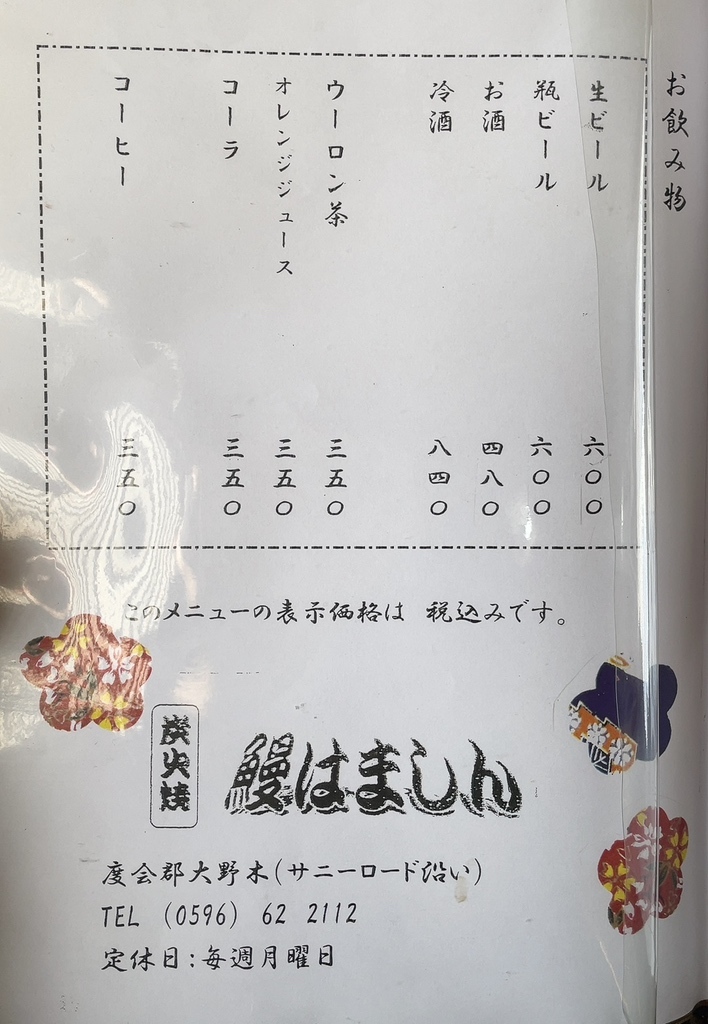 お飲み物
生ビール 六〇〇
瓶ビール 六〇〇
お酒 四八〇
冷酒 八四〇
ウーロン茶 三五〇
オレンジジュース 三五〇
コーラ 三五〇
コーヒー 三五〇
このメニューの表示価格は 税込みです。
炭火焼
鰻はましん
度会郡大野木(サニーロード沿い)
TEL (0596) 62 2112
定休日:毎週月曜日